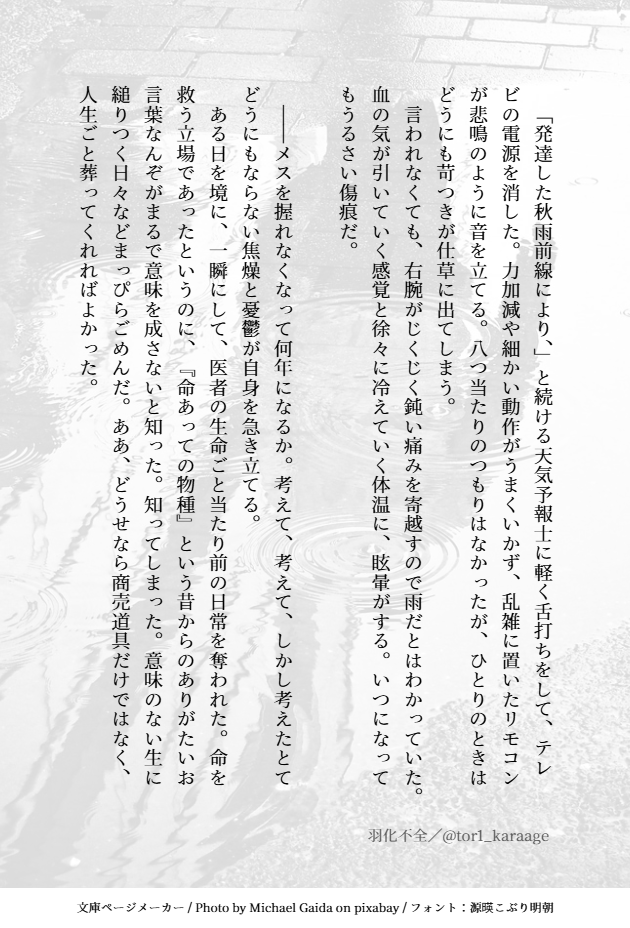 「発達した秋雨前線により、」と続ける天気予報士に軽く舌打ちをして、テレ
ビの電源を消した。力加減や細かい動作がうまくいかず、乱雑に置いたリモコン
が悲鳴のように音を立てる。八つ当たりのつもりはなかったが、ひとりのときは
どうにも苛つきが仕草に出てしまう。
言われなくても、右腕がじくじく鈍い痛みを寄越すので雨だとはわかっていた。
血の気が引いていく感覚と徐々に冷えていく体温に、眩暈がする。いつになって
もうるさい傷痕だ。
――メスを握れなくなって何年になるか。考えて、考えて、しかし考えたとて
どうにもならない焦燥と憂鬱が自身を急き立てる。
ある日を境に、一瞬にして、医者の生命ごと当たり前の日常を奪われた。命を
救う立場であったというのに、『命あっての物種』という昔からのありがたいお
言葉なんぞがまるで意味を成さないと知った。知ってしまった。意味のない生に
縋りつく日々などまっぴらごめんだ。ああ、どうせなら商売道具だけではなく、
人生ごと葬ってくれればよかった。
羽化不全／@tor1_karaage
文庫ページメーカー / Photo by Michael Gaida on pixabay / フォント：源暎こぶり明朝